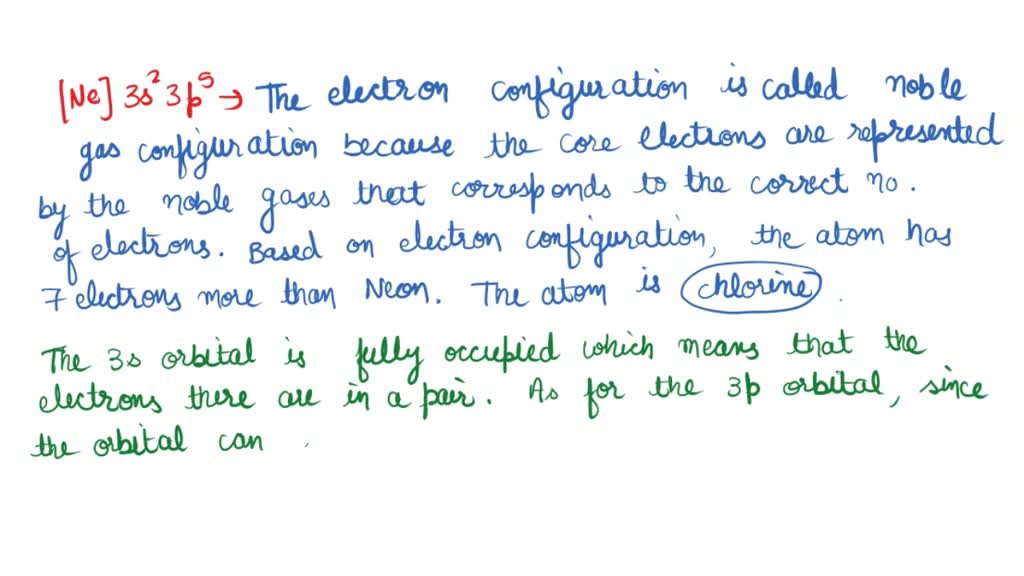 [Ne] 3s² 3p⁵ → The electron configuration is called noble
gas configuration because the core electrons are represented
by the noble gases that corresponds to the correct no.
of electrons. Based on electron configuration, the atom has
7 electrons more than Neon. The atom is chlorine.
The 3s orbital is fully occupied which means that the
electrons there are in a pair. As for the 3p orbital, since
the orbital can